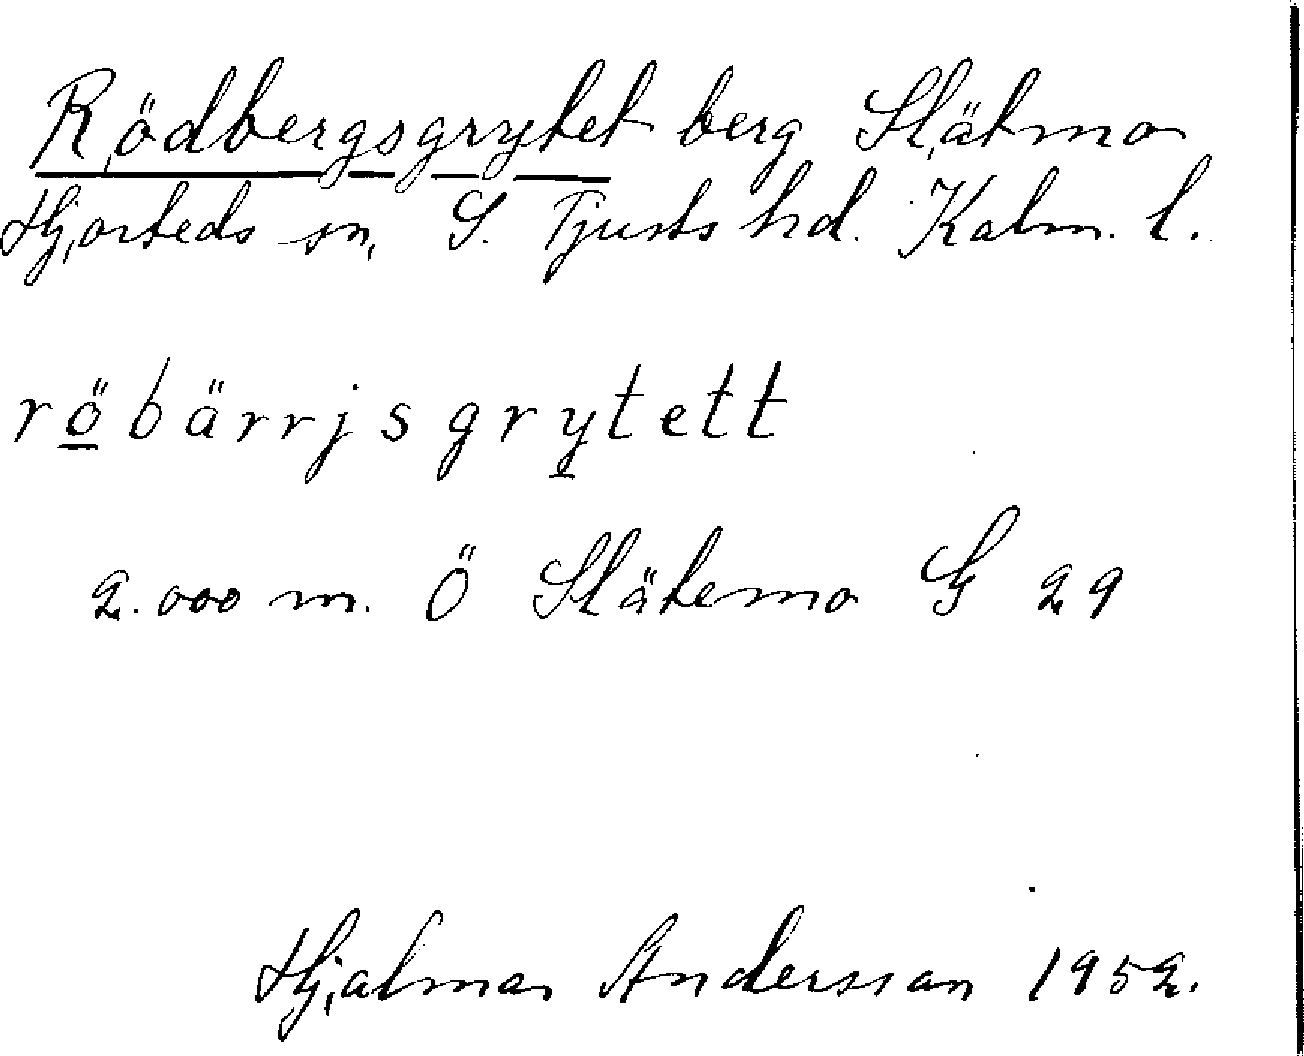 Rödbergsgrytet berg Slätmo
Hjorteds sn, S. Tjusts hd. Kalm. l.
röbärrjsgrytett
2.000 m. Ö Slätemo G 29
Hjalmar Andersson 1952.